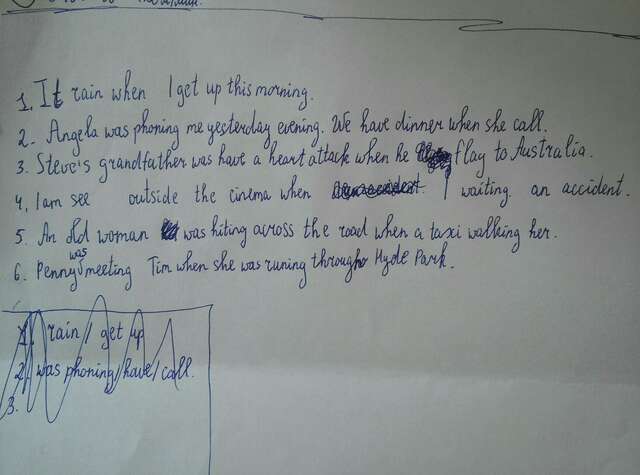 1. It rain when I get up this morning.
2. Angela was phoning me yesterday evening. We have dinner when she call.
3. Steve's grandfather was have a heart attack when he flay to Australia.
4. I am see outside the cinema when I waiting an accident.
5. An old woman was hiting across the road when a taxi walking her.
6. Penny was meeting Tim when she was runing through Hyde Park.
1. rain / get up
2. was phoning / have / call.
3.